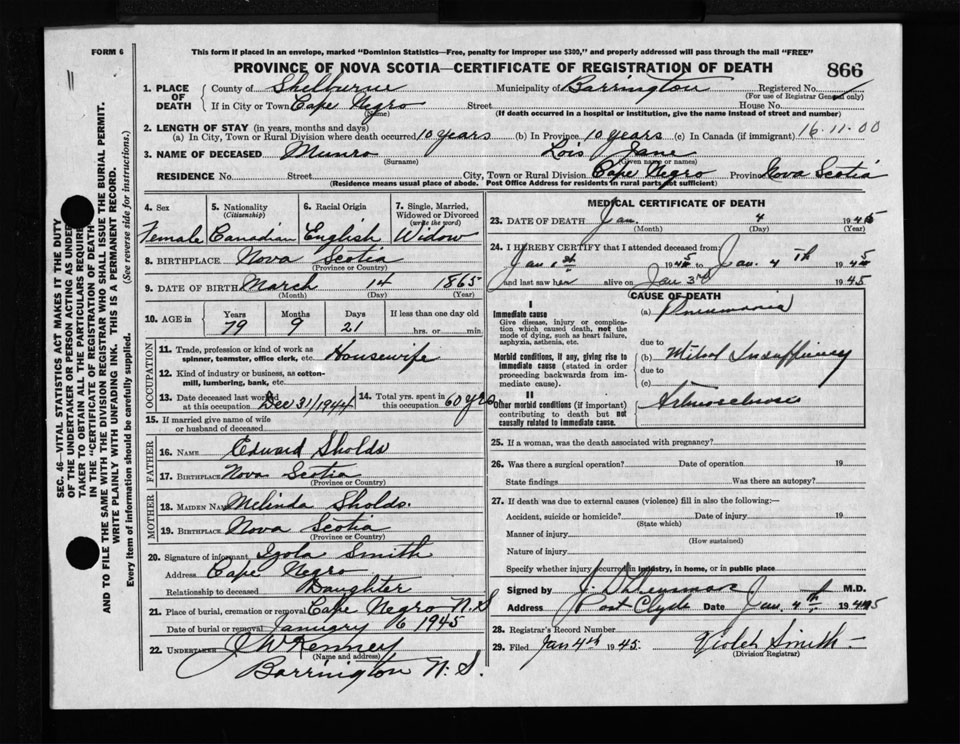 FORM 6
This form if placed in an envelope, marked "Dominion Statistics—Free, penalty for improper use $300," and properly addressed will pass through the mail "FREE"
PROVINCE OF NOVA SCOTIA—CERTIFICATE OF REGISTRATION OF DEATH 866
1. PLACE OF DEATH County of Shelburne Municipality of Barrington Registered No.
(For use of Registrar General only)
If in City or Town Cape Negro Street House No.
(Name) (If death occurred in a hospital or institution, give the name instead of street and number)
2. LENGTH OF STAY (in years, months and days)
(a) In City, Town or Rural Division where death occurred 10 years (b) In Province 10 years (c) In Canada (if immigrant) 16.11.00
3. NAME OF DECEASED Munro Lois Jane
(Surname) (Given name or names)
RESIDENCE No. Street City, Town or Rural Division Cape Negro Province Nova Scotia
(Residence means usual place of abode. Post Office Address for residents in rural parts not sufficient)
4. Sex 5. Nationality (Citizenship) 6. Racial Origin 7. Single, Married, Widowed or Divorced (write the word)
Female Canadian English Widow
8. BIRTHPLACE Nova Scotia
(Province or Country)
9. DATE OF BIRTH March 14 1865
(Month) (Day) (Year)
10. AGE in Years Months Days If less than one day old
79 9 21 hrs. or min.
OCCUPATION
11. Trade, profession or kind of work as spinner, teamster, office clerk, etc. Housewife
12. Kind of industry or business, as cotton-mill, lumbering, bank, etc.
13. Date deceased last worked at this occupation Dec 31/1944 14. Total yrs. spent in this occupation 60 yrs
15. If married give name of wife or husband of deceased
FATHER
16. NAME Edward Sholds
17. BIRTHPLACE Nova Scotia
(Province or Country)
MOTHER
18. MAIDEN NAME Melinda Sholds.
19. BIRTHPLACE Nova Scotia
(Province or Country)
20. Signature of informant Izola Smith
Address Cape Negro
Relationship to deceased Daughter
21. Place of burial, cremation or removal Cape Negro N.S
Date of burial or removal January 6 1945
22. UNDERTAKER J W Kenney
(Name and address)
Barrington N.S.
MEDICAL CERTIFICATE OF DEATH
23. DATE OF DEATH Jan. 4 1945
(Month) (Day) (Year)
24. I HEREBY CERTIFY that I attended deceased from
Jan 1st 1945 to Jan. 4th 1945
and last saw her alive on Jan 3rd 1945
CAUSE OF DEATH
I
Immediate cause
Give disease, injury or complication which caused death, not the mode of dying, such as heart failure, asphyxia, asthenia, etc.
(a) Pneumonia
due to
Morbid conditions, if any, giving rise to immediate cause (stated in order proceeding backwards from immediate cause).
(b) Mitral Insufficiency
due to
(c)
II
Other morbid conditions (if important) contributing to death but not causally related to immediate cause.
25. If a woman, was the death associated with pregnancy?
26. Was there a surgical operation? Date of operation 19
State findings Was there an autopsy?
27. If death was due to external causes (violence) fill in also the following:—
Accident, suicide or homicide? Date of injury 19
(State which)
Manner of injury
(How sustained)
Nature of injury
Specify whether injury occurred in industry, in home, or in public place
Signed by M.D.
Address Port Clyde Date Jan. 4th 1945
28. Registrar's Record Number
29. Filed Jan 4th 1945. Violet Smith
(Division Registrar)
SEC. 46—VITAL STATISTICS ACT MAKES IT THE DUTY
OF THE UNDERTAKER OR PERSON ACTING AS UNDER-
TAKER TO OBTAIN ALL THE PARTICULARS REQUIRED
IN THE "CERTIFICATE OF REGISTRATION OF DEATH"
AND TO FILE THE SAME WITH THE DIVISION REGISTRAR WHO SHALL ISSUE THE BURIAL PERMIT.
WRITE PLAINLY WITH UNFADING INK. THIS IS A PERMANENT RECORD.
Every item of information should be carefully supplied. (See reverse side for instructions.)